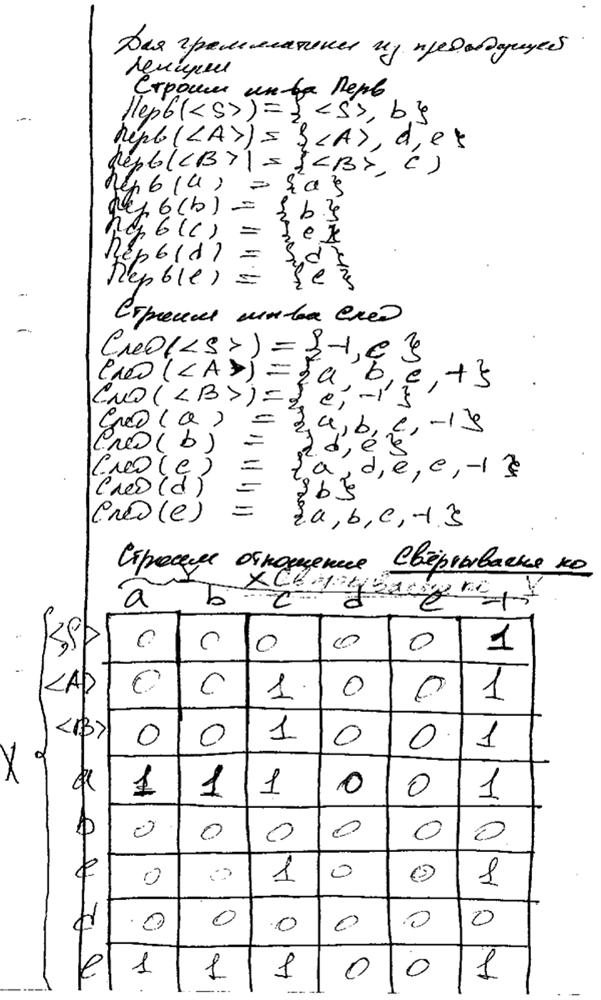 Для грамматики из предыдущей
лекции
Строим мн-ва Перв
Перв(<S>) = { <S>, b }
Перв(<A>) = { <A>, d, e }
Перв(<B>) = { <B>, c }
Перв(a) = { a }
Перв(b) = { b }
Перв(c) = { c }
Перв(d) = { d }
Перв(e) = { e }
Строим мн-ва След
След(<S>) = { ⊣, c }
След(<A>) = { a, b, c, ⊣ }
След(<B>) = { c, ⊣ }
След(a) = { a, b, c, ⊣ }
След(b) = { d, e }
След(c) = { a, d, e, c, ⊣ }
След(d) = { b }
След(e) = { a, b, c, ⊣ }
Строим отношение Свёртывается по
X Свёртывается по Y
a b c d e ⊣
<S> 0 0 0 0 0 1
<A> 0 0 1 0 0 1
<B> 0 0 1 0 0 1
X
a 1 1 1 0 0 1
b 0 0 0 0 0 0
c 0 0 1 0 0 1
d 0 0 0 0 0 0
e 1 1 1 0 0 1